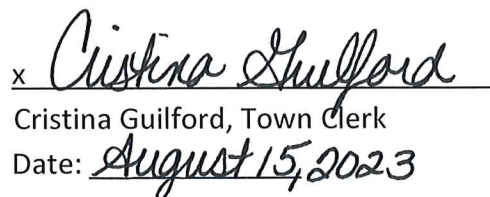 x Cristina Guilford
Cristina Guilford, Town Clerk
Date: August 15, 2023